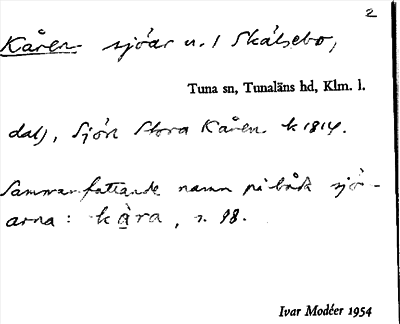 2
Kåren sjöar n. l Skälsebo,
Tuna sn, Tunaläns hd, Klm. l.
dal), Sjön Stora Kåren k 1814.
Sammanfattande namn på båda sjö-
arna: kàra, s. 98.
Ivar Modéer 1954